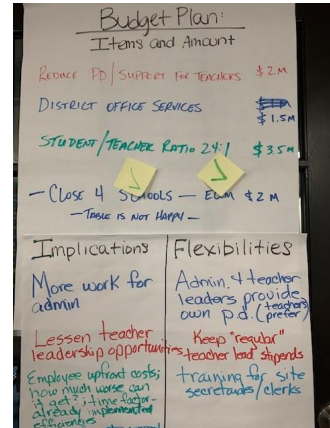 Budget Plan:
Items and Amount
REDUCE PD/SUPPORT FOR TEACHERS $2M
DISTRICT OFFICE SERVICES
$1.5M
STUDENT/TEACHER RATIO 24:1 $3.5M
- CLOSE 4 SCHOOLS - $2M
- TABLE IS NOT HAPPY -
Implications
More work for
admin
Lessen teacher
leadership opportunities
Employee upfront costs;
how much worse can
it get?; time factor-
already implemented
efficiencies
Flexibilities
Admin. & teacher
leaders provide
own p.d. (teachers
prefer)
Keep "regular"
teacher lead stipends
training for site
secretaries/clerks